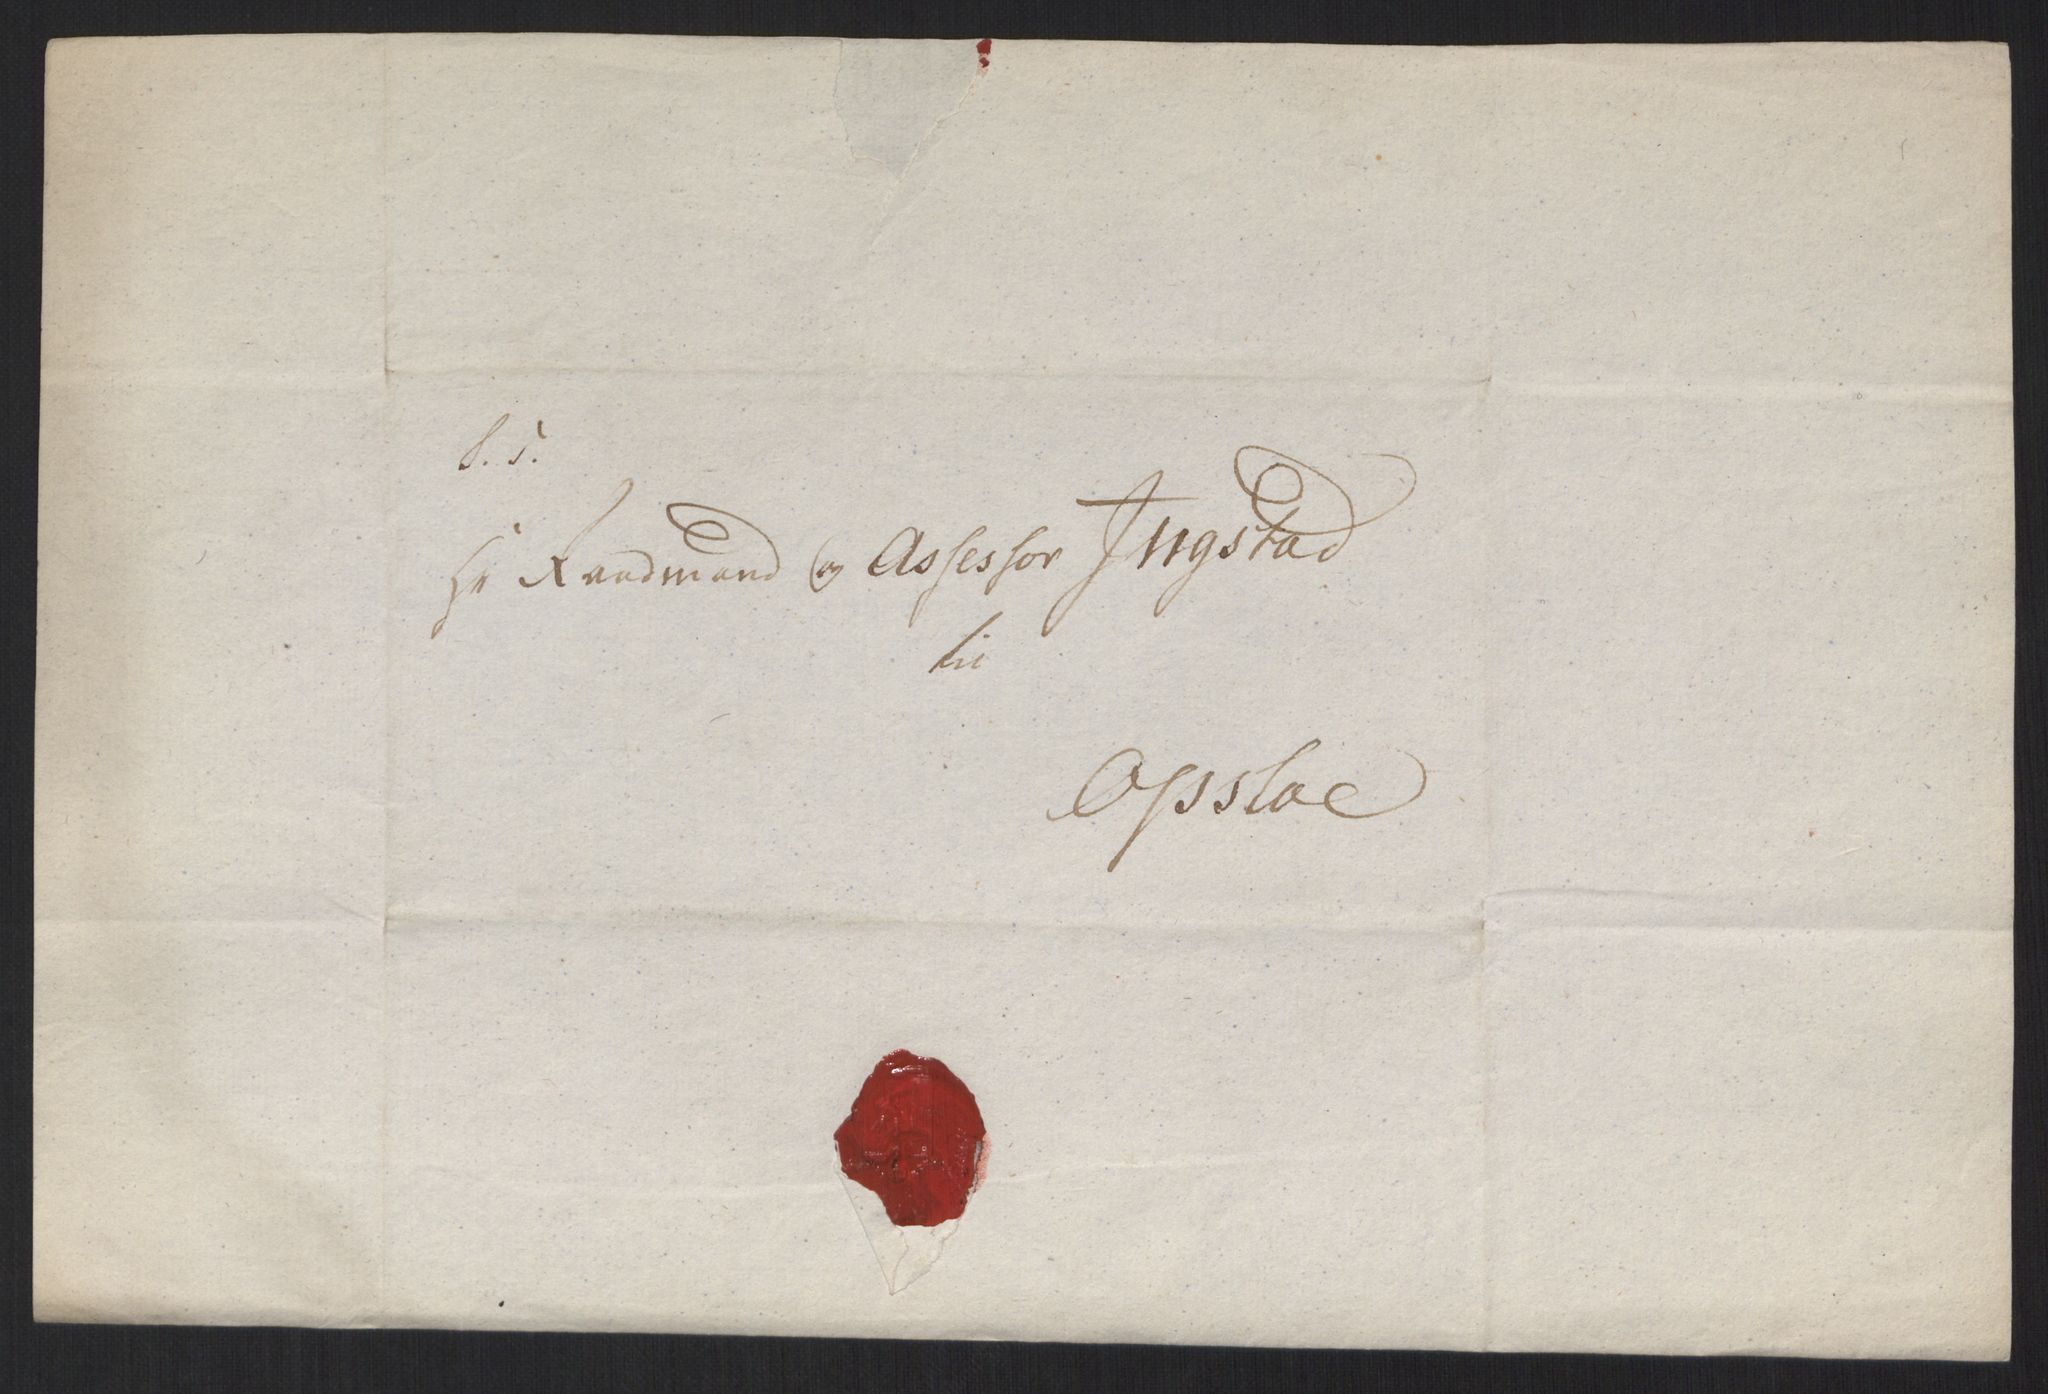 S. T.
Hr Raadmand og Assessor Ingstad
til
Opsloe